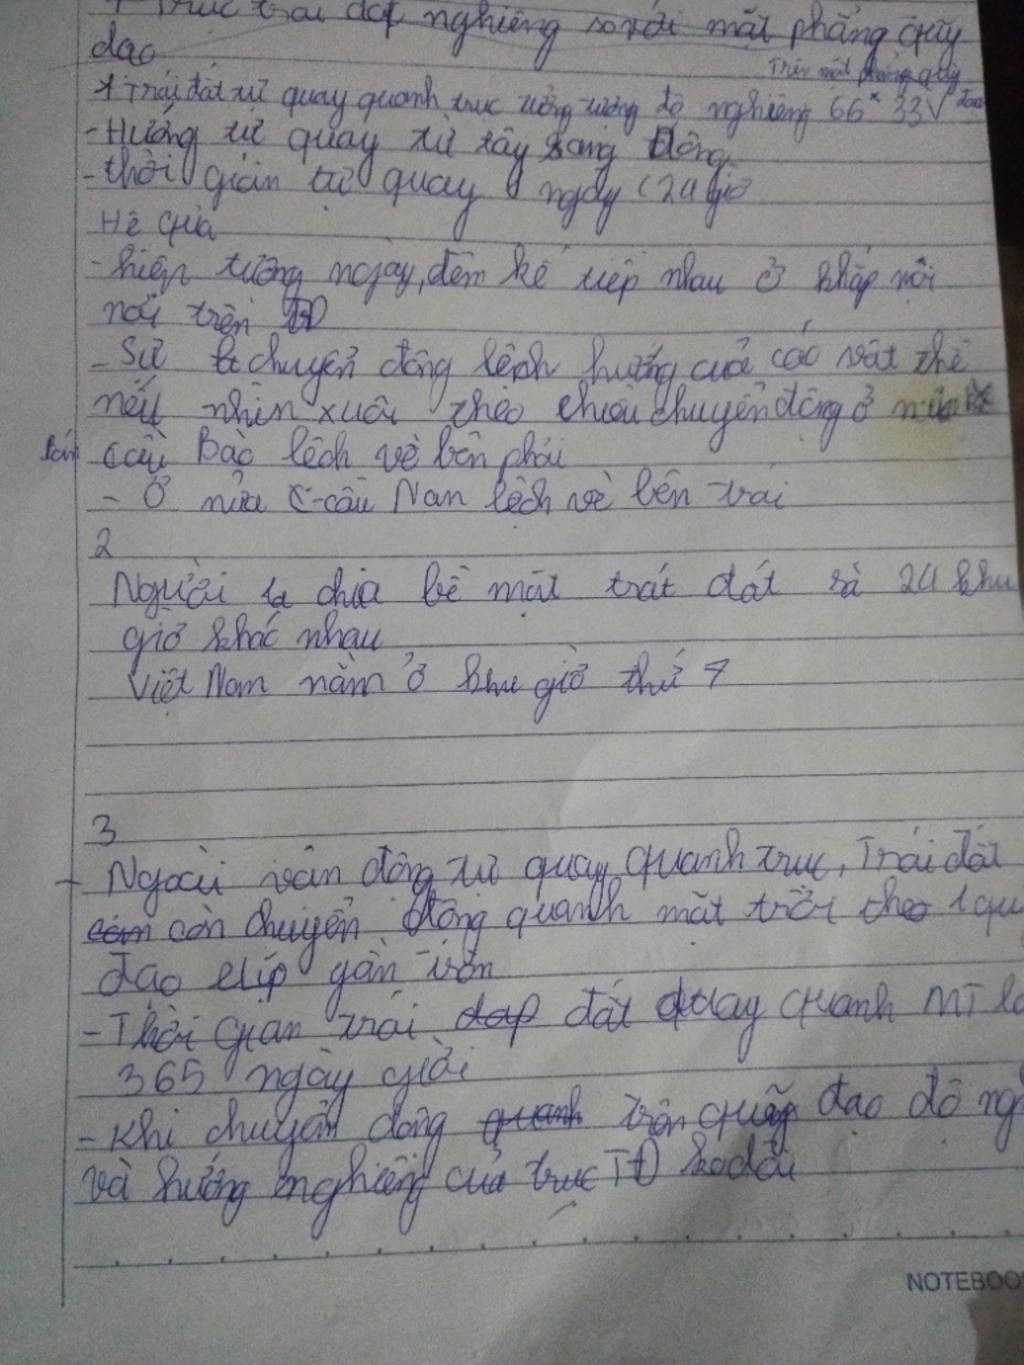 Trục trái đất nghiêng so với mặt phẳng quỹ
đạo
Trên mặt phẳng quỹ
+ Trái đất tự quay quanh trục tưởng tượng độ nghiêng 66° 33 đạo
- Hướng tự quay từ tây sang Đông
- thời gian tự quay 1 ngày (24 giờ
Hệ qủa
- hiện tượng ngày, đêm kế tiếp nhau ở khắp mọi
nơi trên TĐ
- Sự chuyển động lệch hướng của các vật thể
nếu nhìn xuôi theo chiều chuyển động ở nửa
bán cầu Bắc lệch về bên phải
- Ở nửa cầu Nam lệch về bên trái
2
Người ta chia bề mặt trát đất rà 24 khu
giờ khác nhau
Việt Nam nằm ở khu giờ thứ 7
3
+ Ngoài vận động tự quay quanh trục, Trái đất
còn chuyển động quanh mặt trời theo 1 quỹ
đạo elíp gần tròn
- Thời gian trái đất quay quanh MT là
365 ngày giời
- Khi chuyển động quanh trên quỹ đạo độ ng
và hướng nghiêng của trục TĐ ko đổi
NOTEBOO